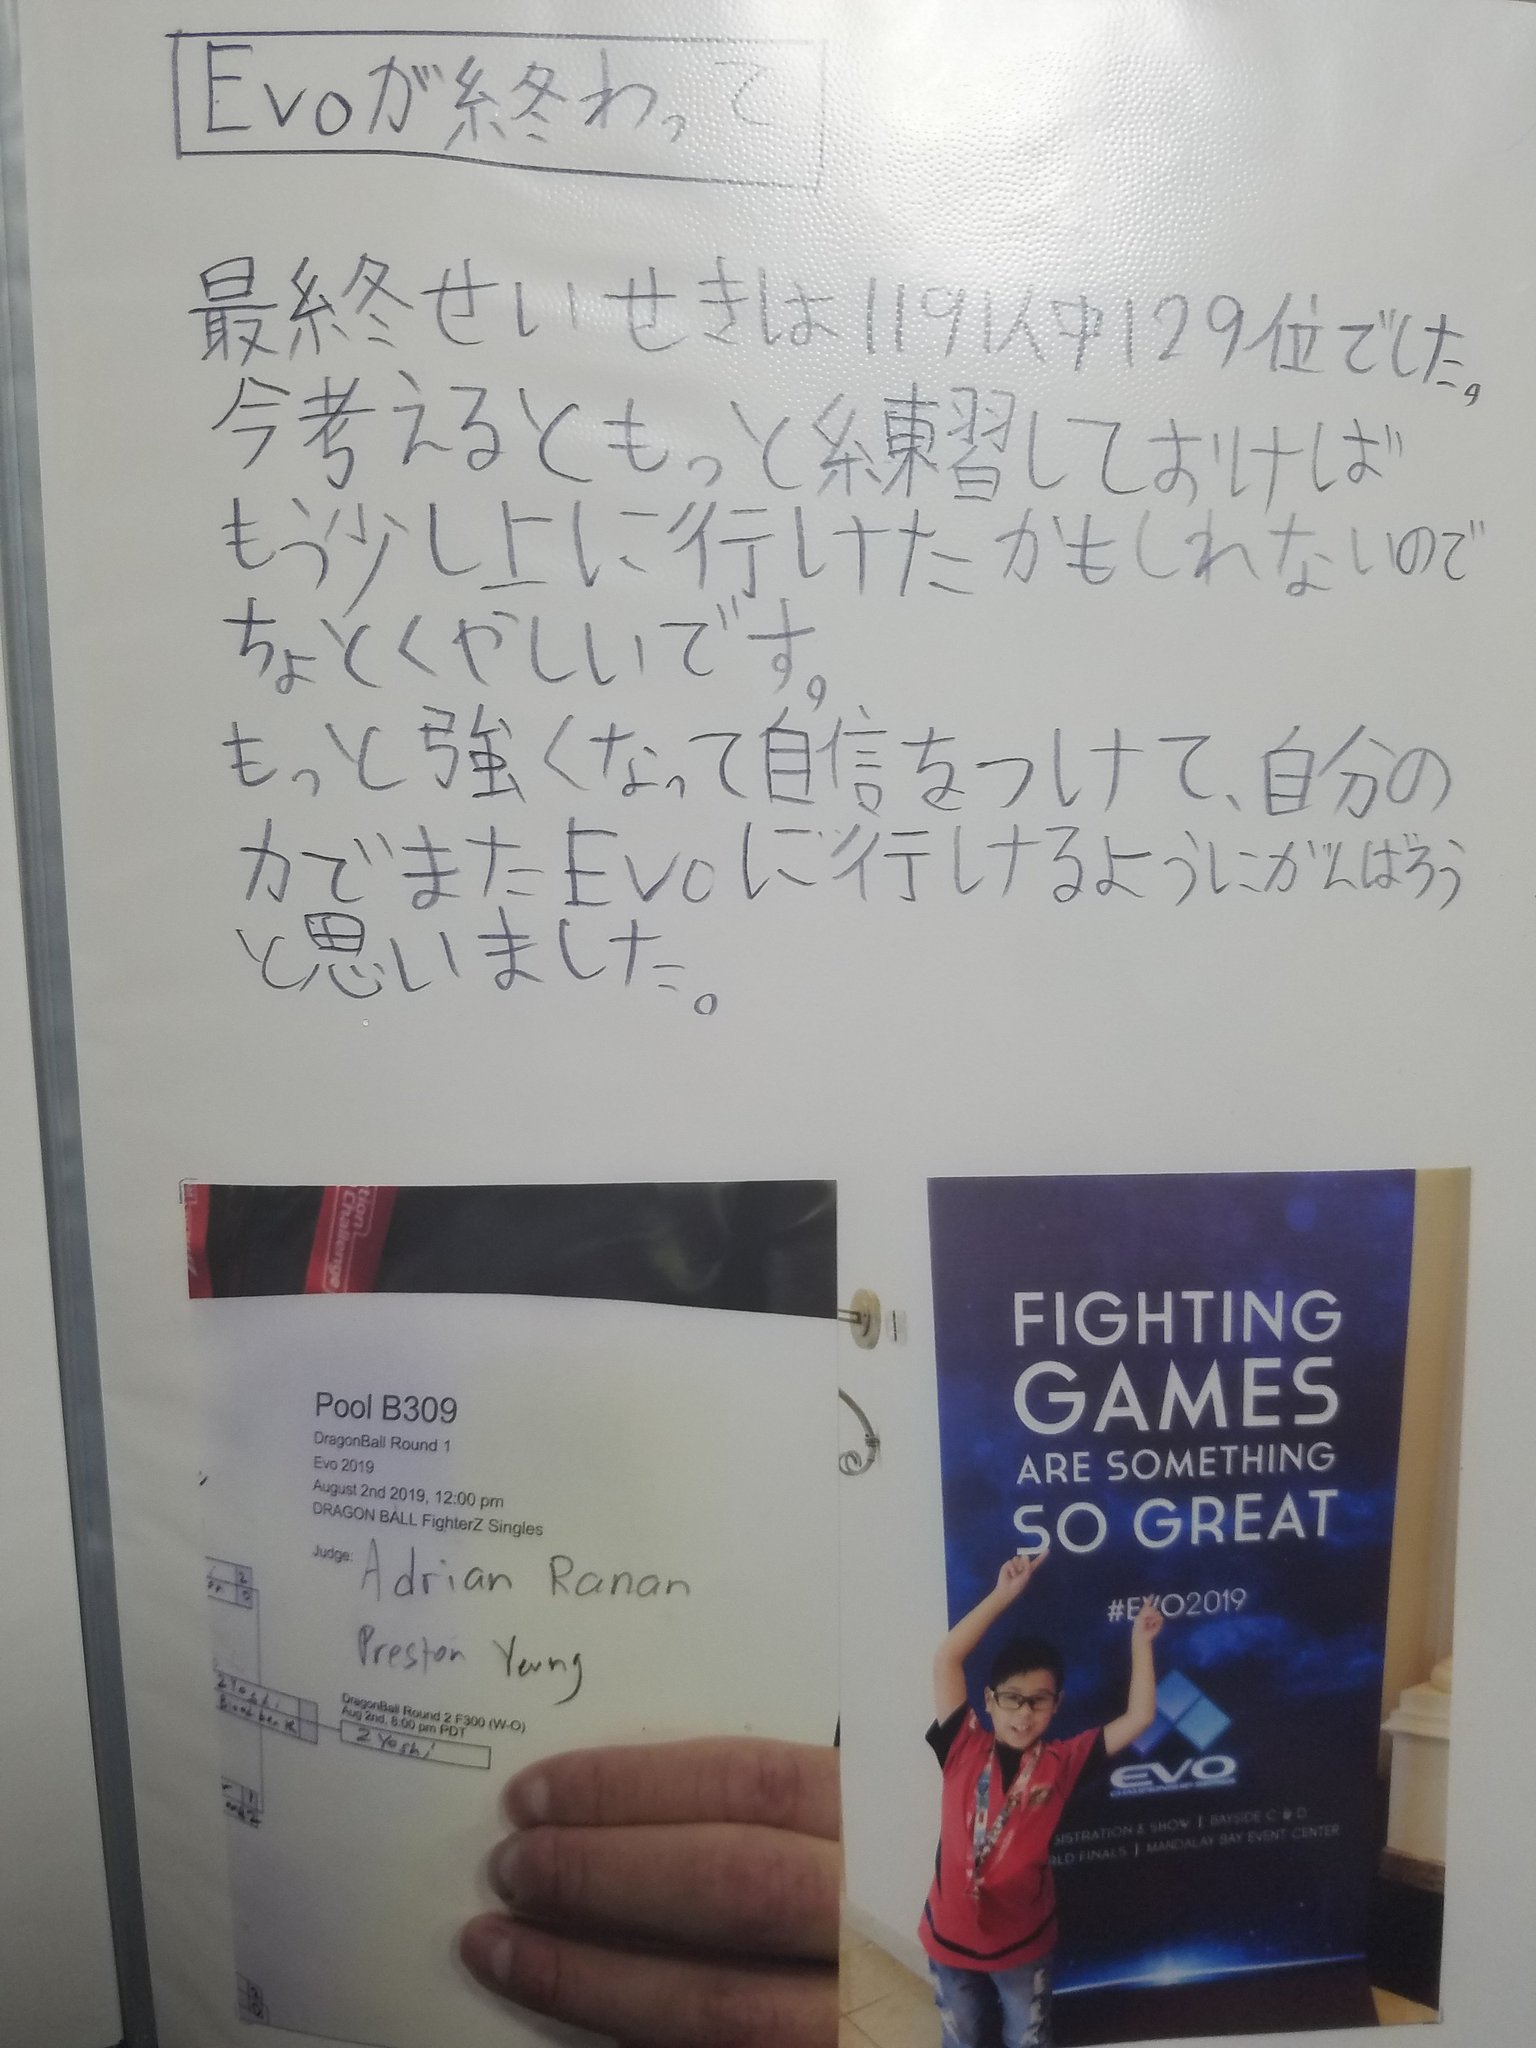 Evoが終わって
最終せいせきは1191人中129位でした。
今考えるともっと練習しておけば
もう少し上に行けたかもしれないので
ちょとくやしいです。
もっと強くなって自信をつけて、自分の
力でまたEvoに行けるようにがんばろう
と思いました。
tion
Challenge
Pool B309
DragonBall Round 1
Evo 2019
August 2nd 2019, 12:00 pm
DRAGON BALL FighterZ Singles
Judge: Adrian Ranan
Preston Yeung
DragonBall Round 2 F300 (W-O)
Aug 2nd, 8:00 pm PDT
2 Yoshi
2 Yoshi
FIGHTING
GAMES
ARE SOMETHING
SO GREAT
#EVO2019
EVO
ISTRATION & SHOW | BAYSIDE C & D
RLD FINALS | MANDALAY BAY EVENT CENTER